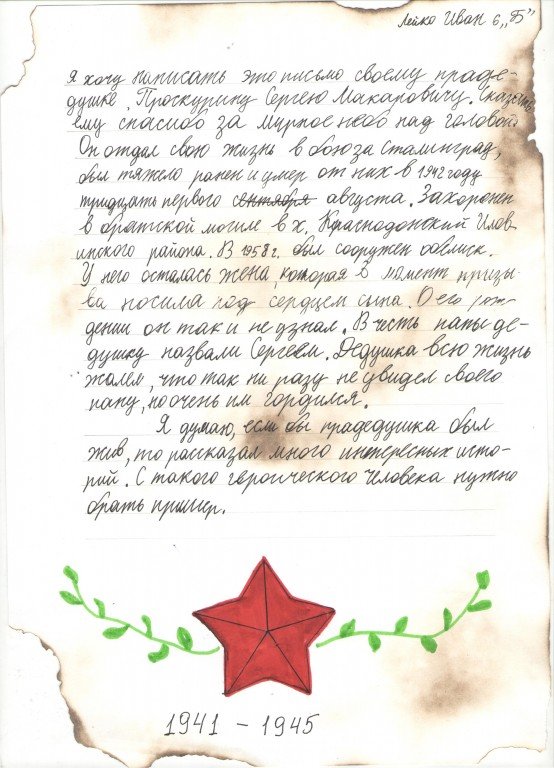 Лейко Иван 6 „Б"
Я хочу написать это письмо своему праде-
душке, Проскурину Сергею Макаровичу. Сказать
ему спасибо за мирное небо над головой.
Он отдал свою жизнь в боюза Сталинград,
был тяжело ранен и умер от них в 1942 году
тридцать первого сентября августа. Захоронен
в братской могиле в х. Краснодонский Илов-
инского района. В 1958 г. был сооружен обелиск.
У него осталась жена, которая в момент призы-
ва носила под сердцем сына. О его рож-
дении он так и не узнал. В честь папы де-
душку назвали Сергеем. Дедушка всю жизнь
жалел, что так ни разу не увидел своего
папу, но очень им гордился.
Я думаю, если бы прадедушка был
жив, то рассказал много интересных исто-
рий. С такого героического человека нужно
брать пример.
1941 - 1945